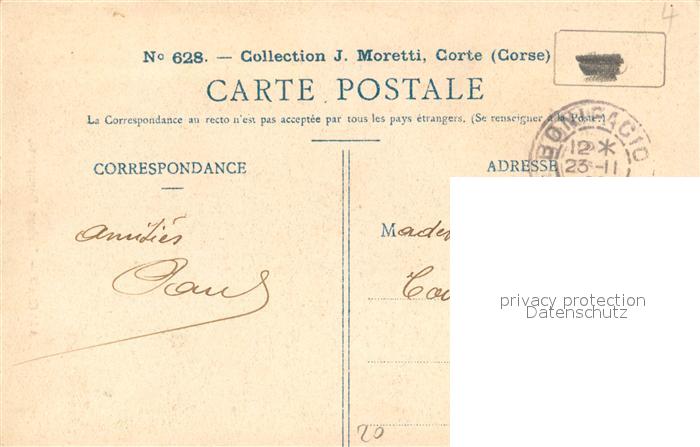 4
No 628. — Collection J. Moretti, Corte (Corse)
CARTE POSTALE
La Correspondance au recto n'est pas acceptée par tous les pays étrangers. (Se renseigner à la Poste.)
BONIFACIO
12 *
23-11
CORRESPONDANCE
ADRESSE
amitiés
Paul
Madem
Cou
privacy protection
Datenschutz
20